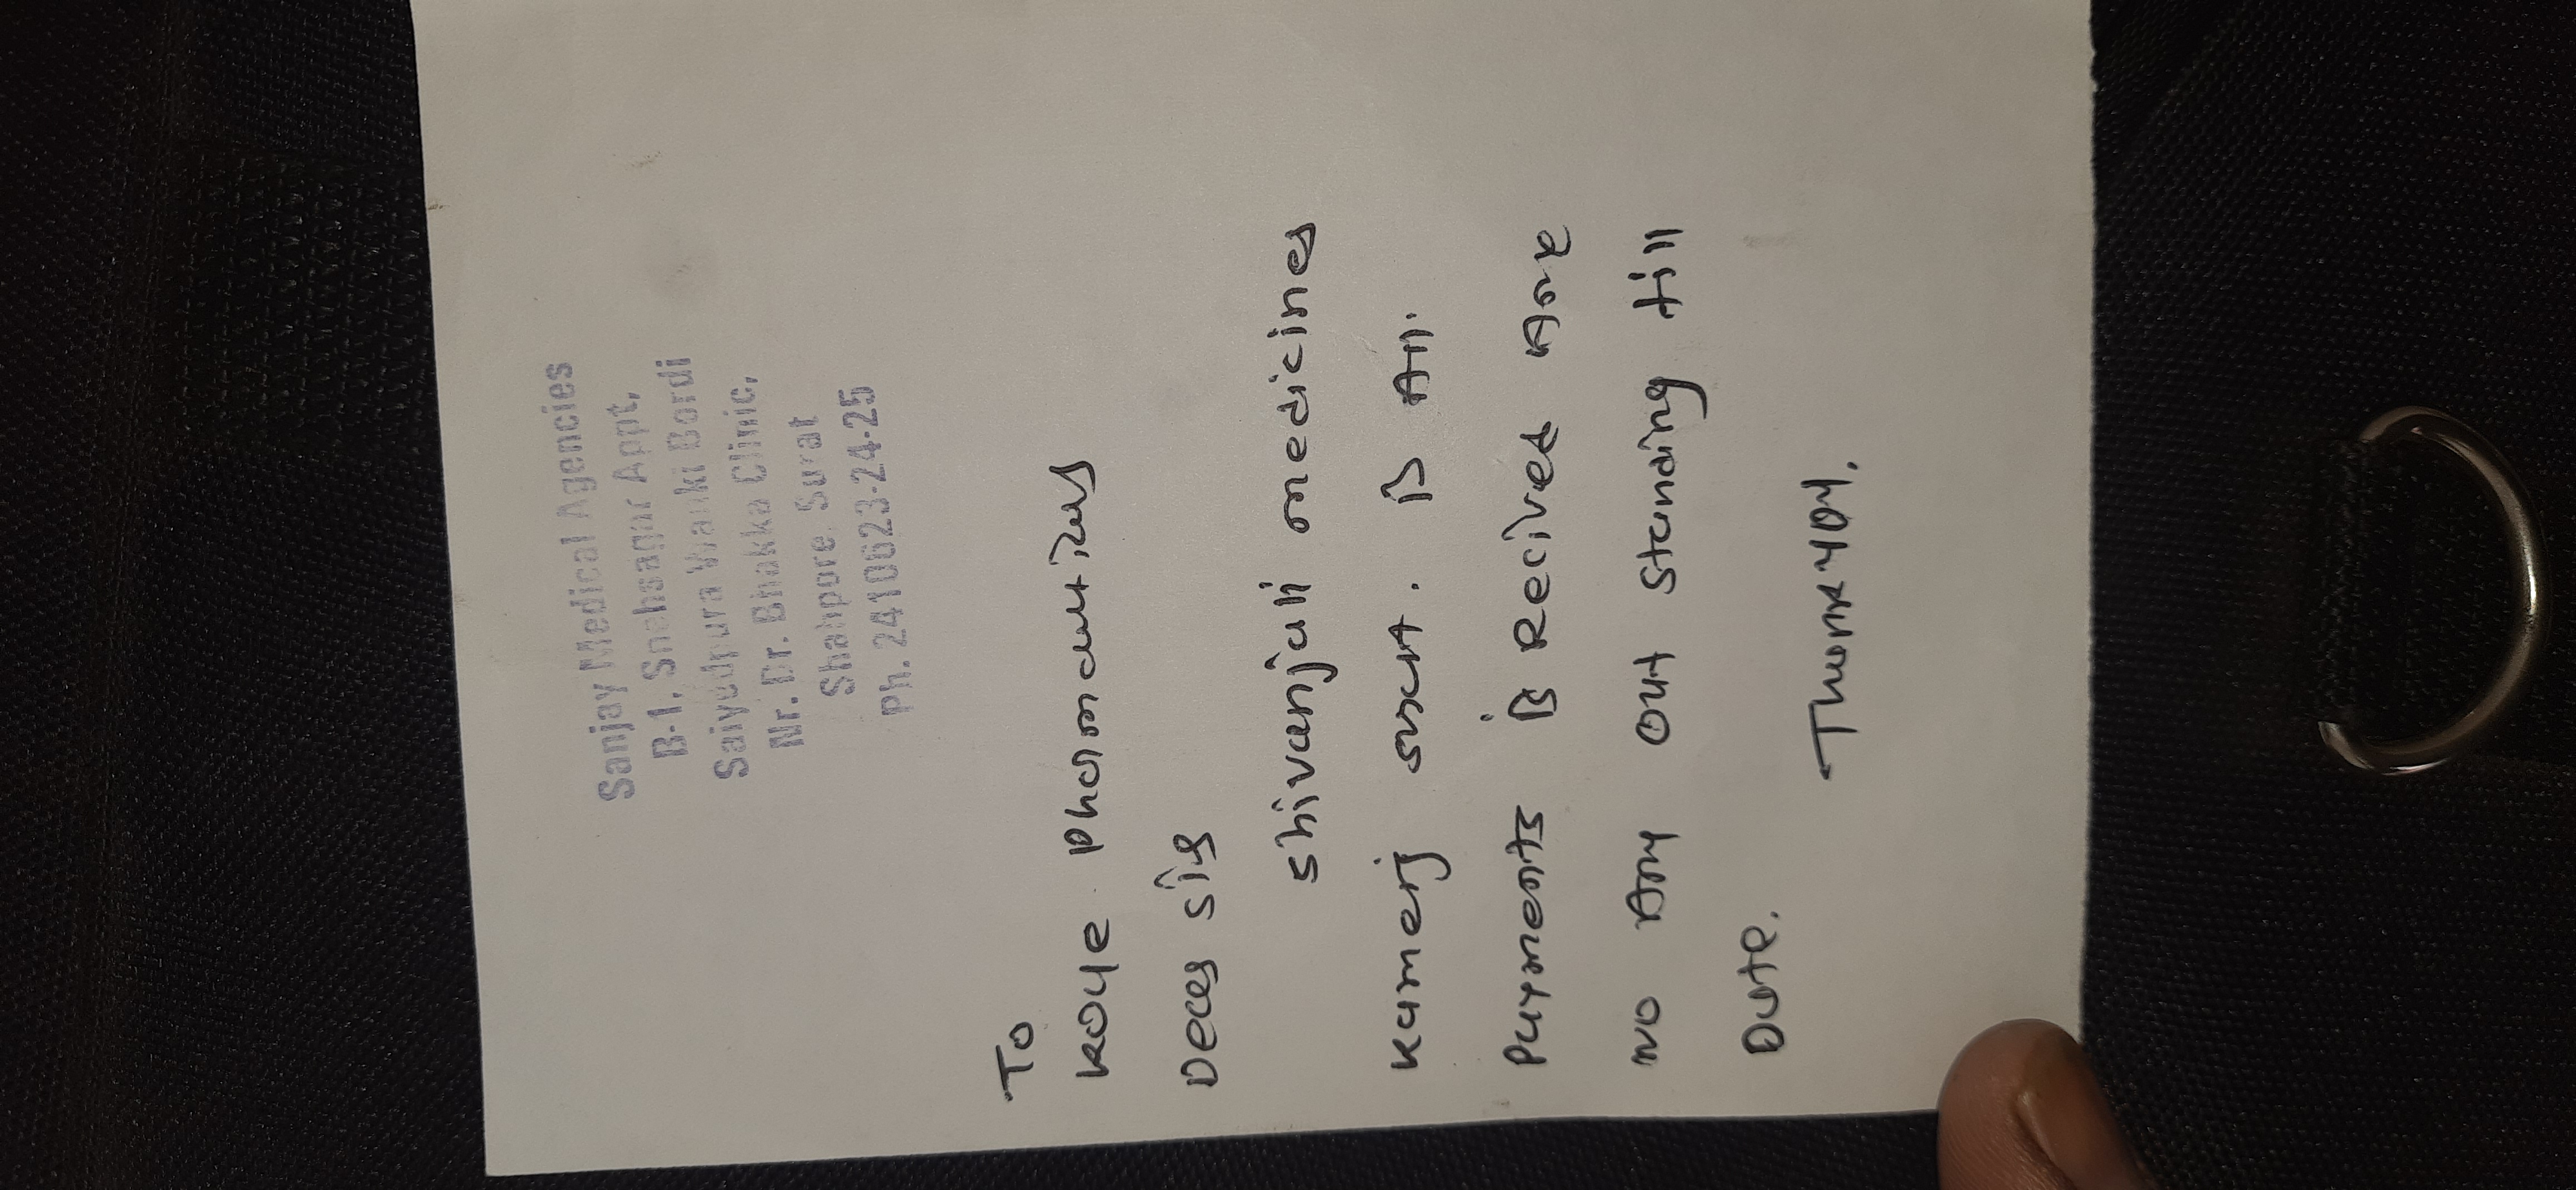 Sanjay Medical Agencies
B-1, Snehsagar Appt,
Saiyedpura Variki Bordi
Nr. Dr. Bhakka Clinic,
Shahpore Surat
Ph. 2410623-24-25
To
Dear Sir
Shivanjali medicines
Kamrej Surat. is All.
Payments is Recived Are
No Any Out Standing till
Date.